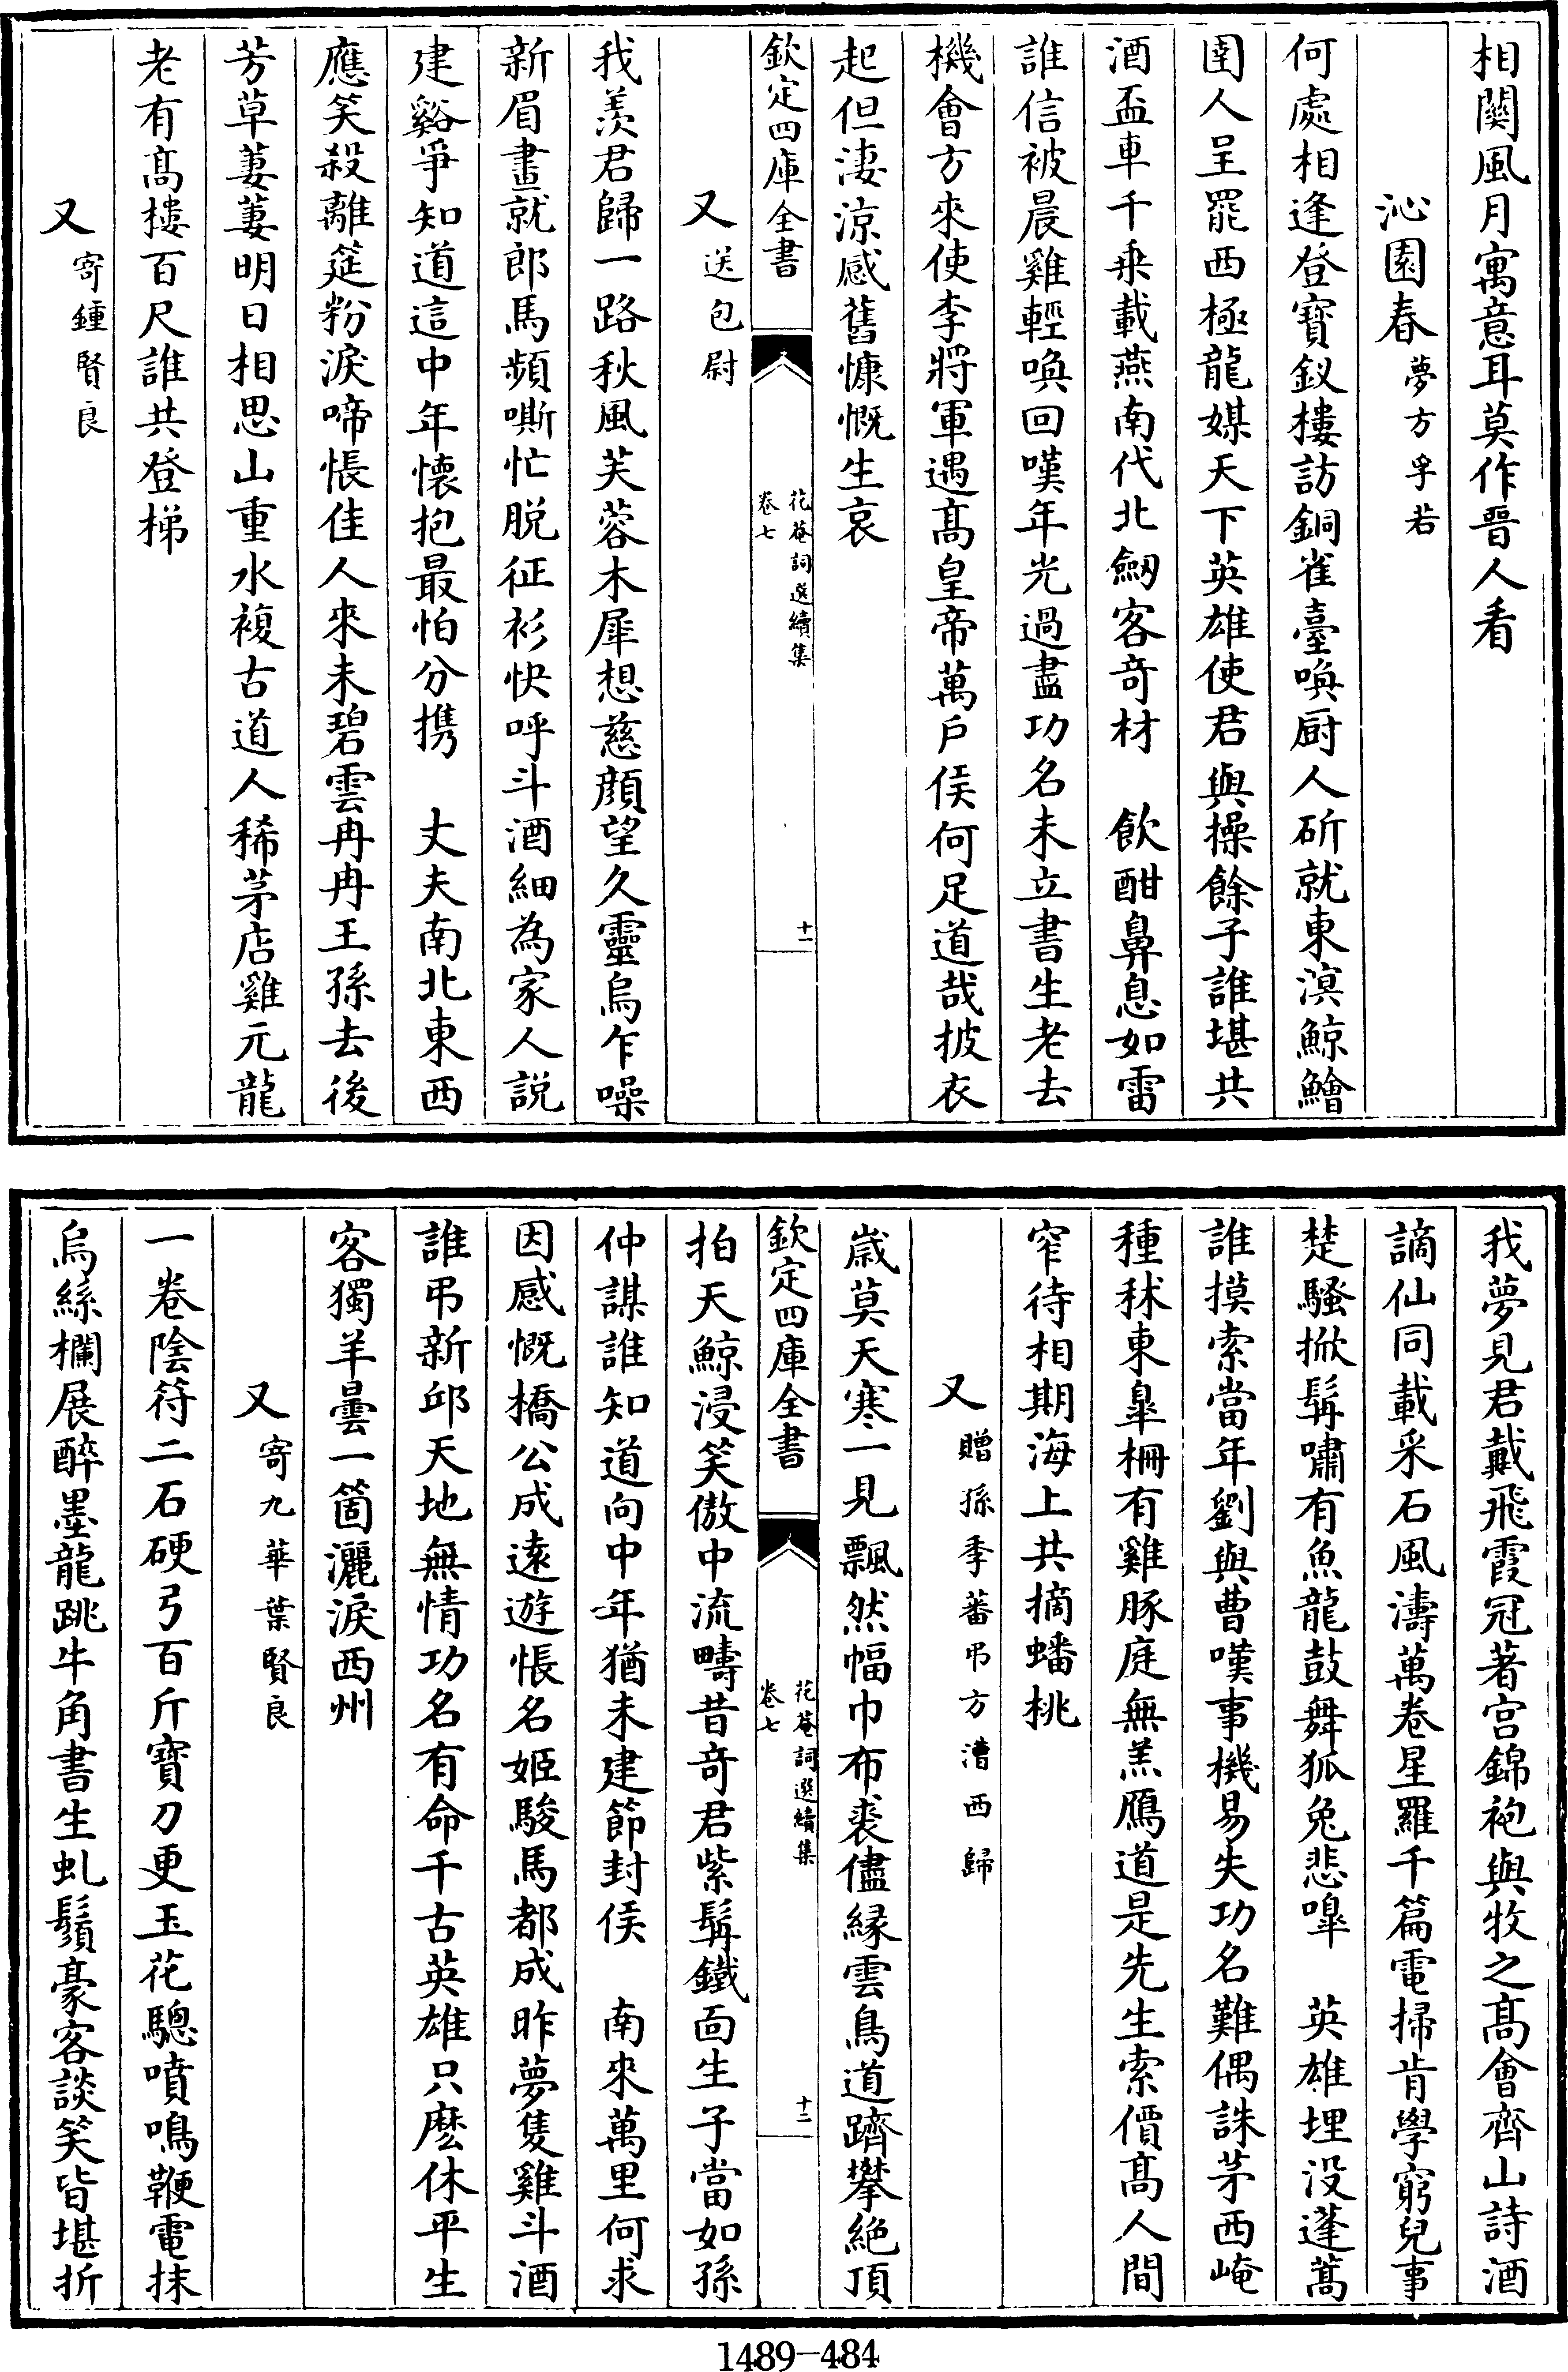 相闗風月寓意耳莫作晉人看
沁園春夢方孚若
何處相逢登寳釵樓訪銅雀臺喚厨人斫就東溟鯨鱠
圉人呈罷西極龍媒天下英雄使君與操餘子誰堪共
酒盃車千乗載燕南代北劒客竒材　飲酣鼻息如雷
誰信被晨雞輕喚回嘆年光過盡功名未立書生老去
機會方來使李將軍遇髙皇帝萬戶侯何足道哉披衣
起但淒涼感舊慷慨生哀
欽定四庫全書　花菴詞選續集　卷七　十一
又送包尉
我羨君歸一路秋風芙蓉木犀想慈顔望久靈烏乍噪
新眉畫就郎馬頻嘶忙脱征衫快呼斗酒細為家人説
建谿爭知道這中年懐抱最怕分携　丈夫南北東西
應笑殺離筵粉淚啼悵佳人來未碧雲冉冉王孫去後
芳草萋萋明日相思山重水複古道人稀茅店雞元龍
老有髙樓百尺誰共登梯
又寄鍾賢良
我夢見君戴飛霞冠著宫錦袍與牧之髙會齊山詩酒
謫仙同載采石風濤萬卷星羅千篇電掃肯學窮兒事
楚騷掀髯嘯有魚龍鼓舞狐兔悲嘷　英雄埋没蓬蒿
誰摸索當年劉與曹嘆事機易失功名難偶誅茅西崦
種秫東臯柵有雞豚庭無羔鴈道是先生索價髙人間
窄待相期海上共摘蟠桃
又贈孫季蕃弔方漕西歸
歳莫天寒一見飄然幅巾布裘儘緣雲鳥道躋攀絶頂
欽定四庫全書　花菴詞選續集　卷七　十二
拍天鯨浸笑傲中流疇昔竒君紫髯鐵面生子當如孫
仲謀誰知道向中年猶未建節封侯　南來萬里何求
因感慨橋公成逺遊悵名姬駿馬都成昨夢隻雞斗酒
誰弔新邱天地無情功名有命千古英雄只麽休平生
客獨羊曇一箇灑淚西州
又寄九華葉賢良
一卷陰符二石硬弓百斤寳刀更玉花驄噴鳴鞭電抹
烏絲欄展醉墨龍跳牛角書生虬鬚豪客談笑皆堪折
1489-484